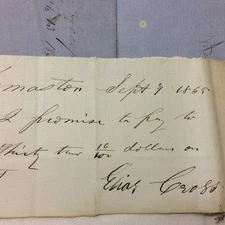 maston Sept 7 1865
I promise to pay to
Thirty two 16/100 dollars on
Elias Cross